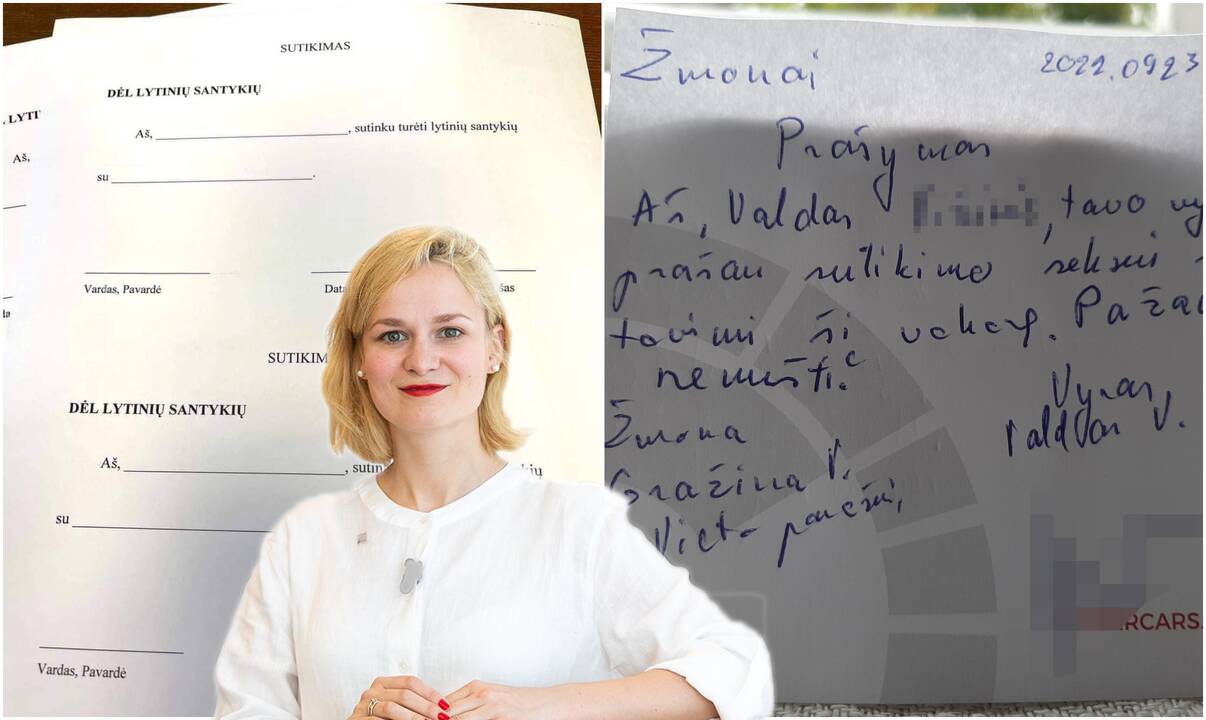 SUTIKIMAS
DĖL LYTINIŲ SANTYKIŲ
Aš, ______, sutinku turėti lytinių santykių
su ______.
Vardas, Pavardė
Data
šas
SUTIKIM
DĖL LYTINIŲ SANTYKIŲ
Aš, ______, sutin
ių
su ______
Vardas, Pavardė
. LYTI
Aš,
Žmonai
2022.0923
Prašymas
Aš, Valdas , tavo vy
prašau sutikimo seksui
tavimi šį vakarą. Pažad
nemušti.
Vyras,
Valdas V.
Žmona
Gražina V.
Vieta parašui,
RCARS.